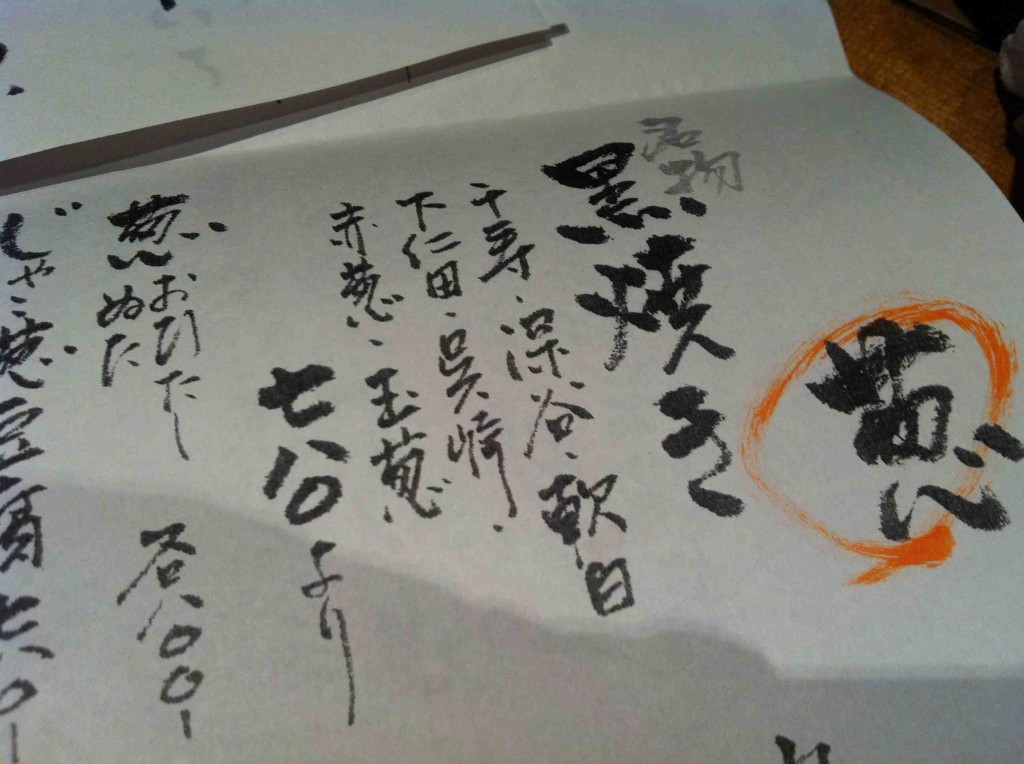 葱
名物
黒焼き
千寿、深谷、軟白
下仁田、呉崎、
赤葱、玉葱
七八〇より
葱おひたし
ぬた
各八〇〇ー
じゃこ葱豆腐七八〇ー